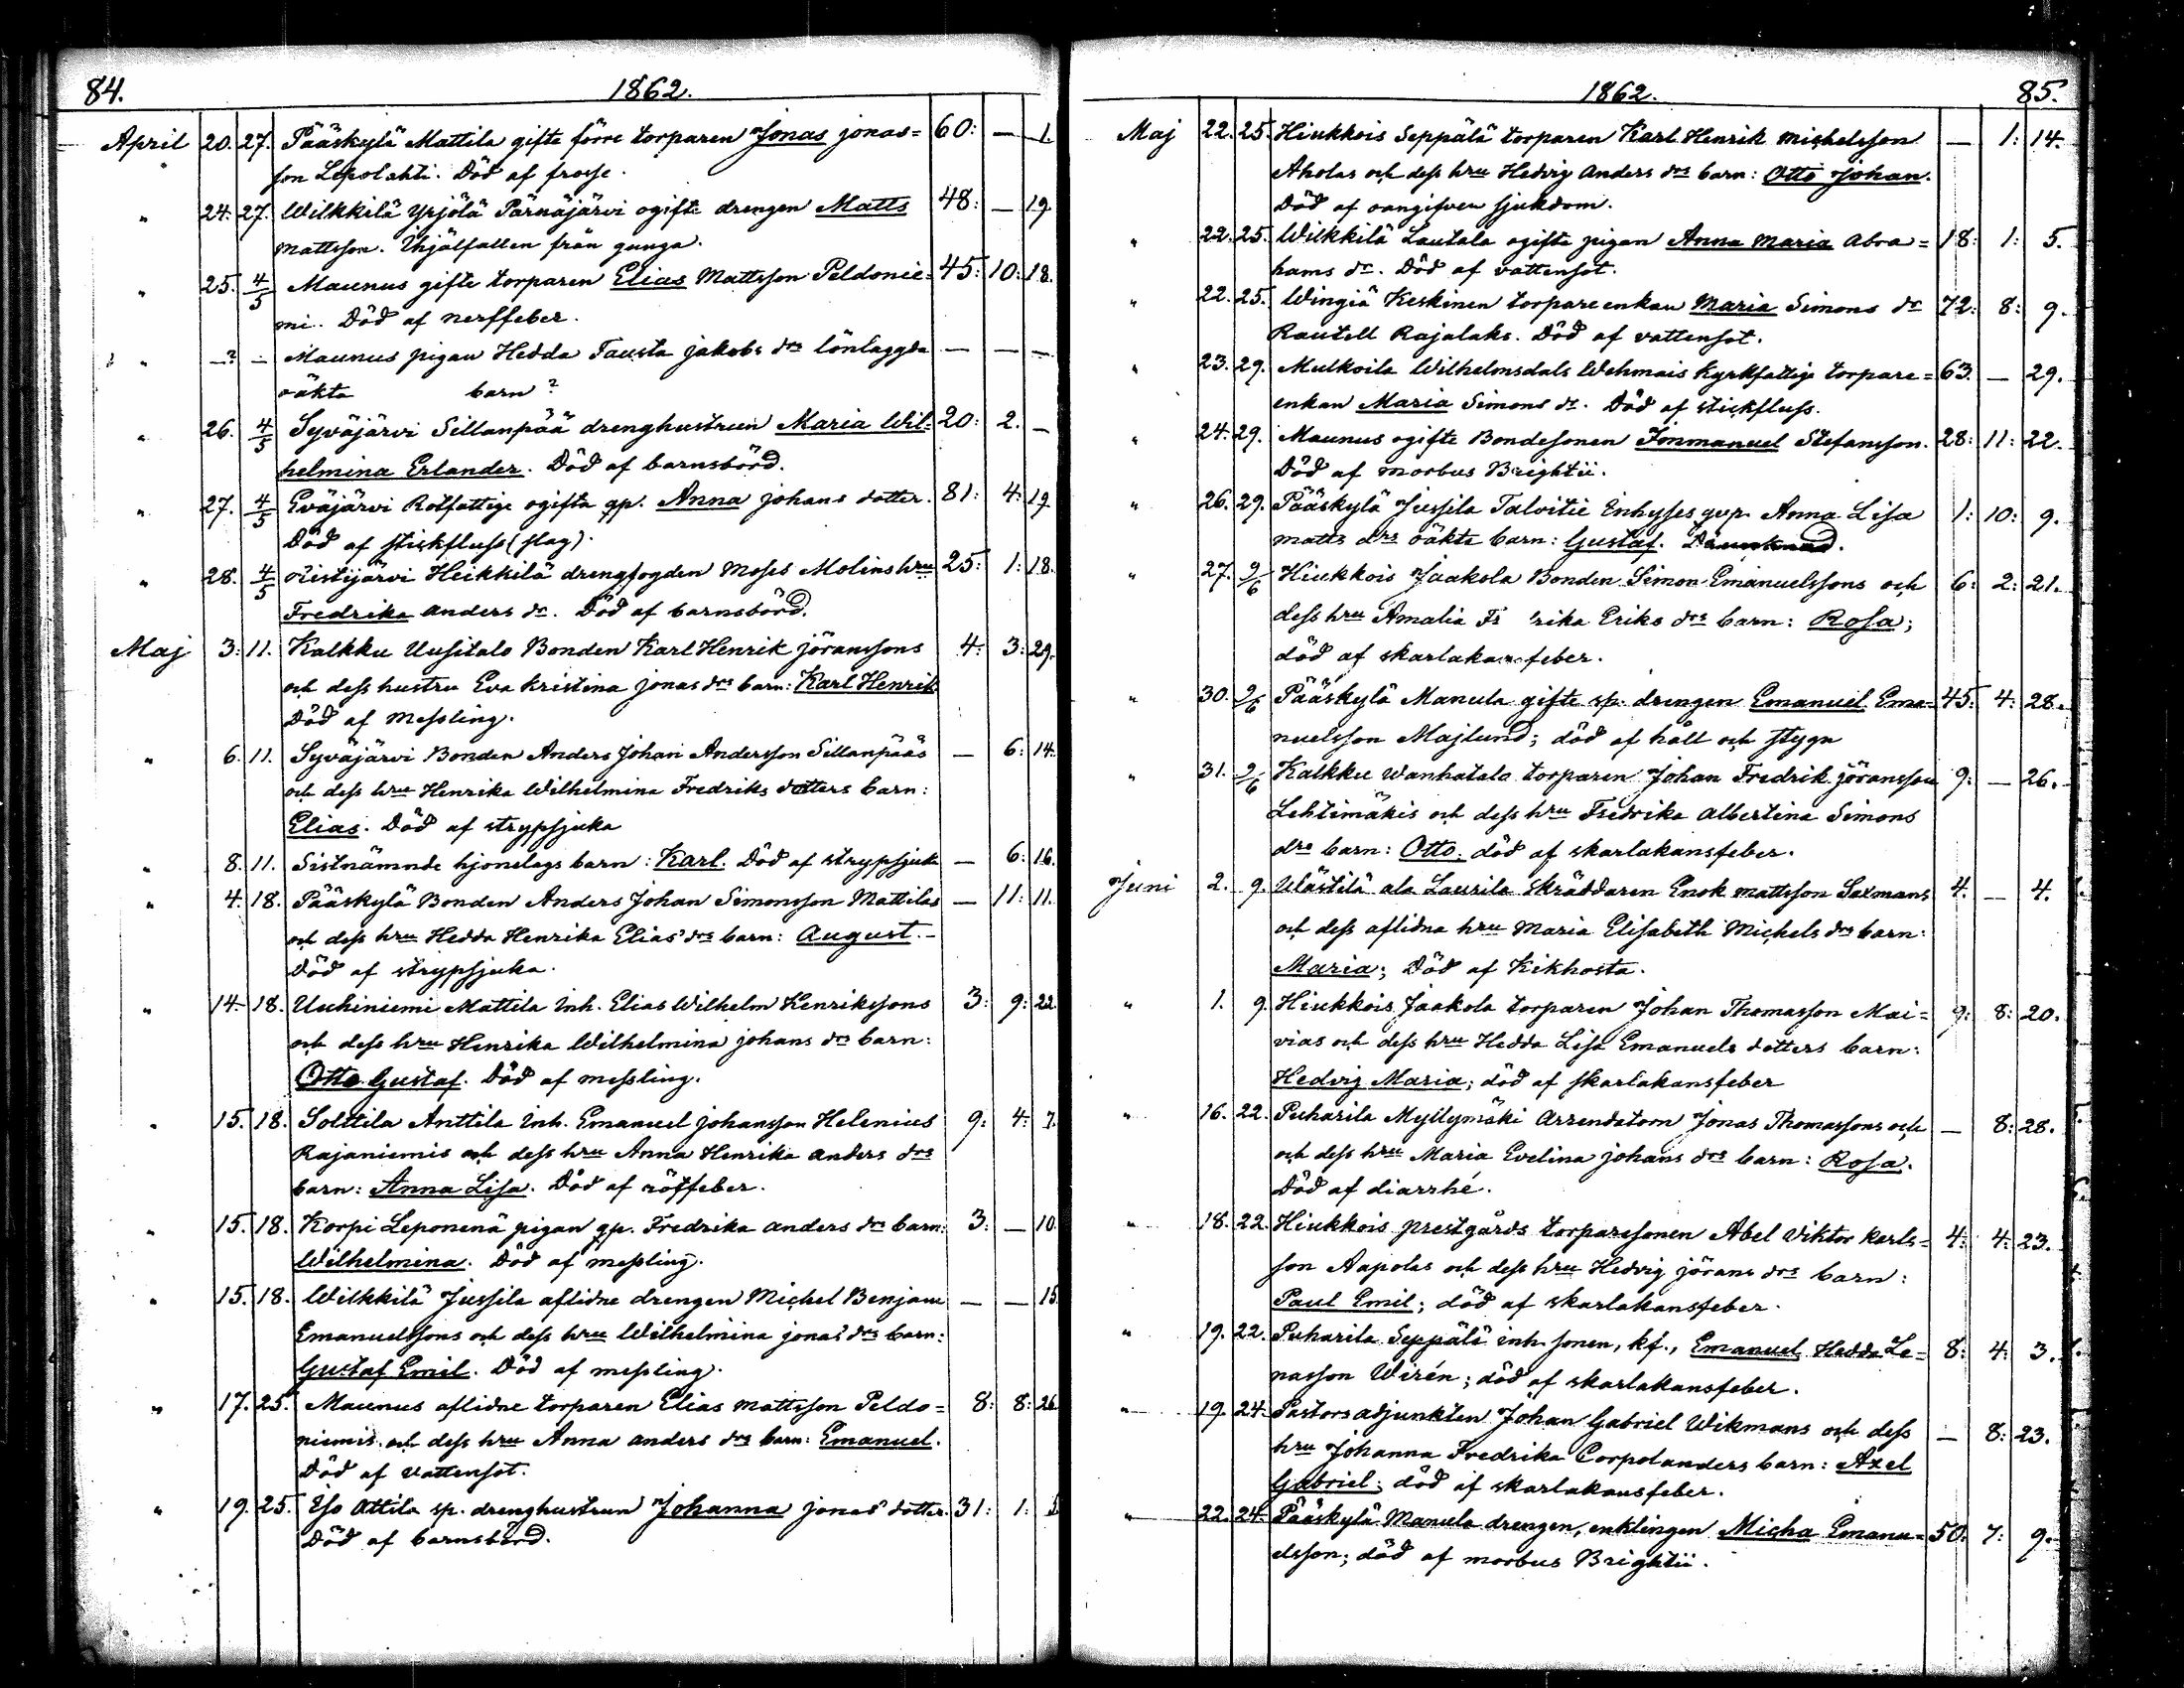 84. 1862.
April 20. 27. Pääskylä Mattila gifte förre torparen Jonas jonas= 60: — 1.
son Lepolahti. Död af frosse.
" 24. 27. Wilkkilä Yrjölä Pärnäjärvi ogifte drengen Matts 48: — 19.
mattsson. Ihjälfallen från gunga.
" 25. 4/5 Maunus gifte torparen Elias Mattsson Peldonie= 45: 10: 18.
mi. Död af nerffeber.
" —? — Maunus pigan Hedda Fausta jakobs drs lönlaggda — — —
oäkta barn?
" 26. 4/5 Syväjärvi Sillanpää drenghustrun Maria Wil= 20: 2. —
helmina Erlander. Död af barnsbörd.
" 27. 4/5 Eväjärvi Rotfattige ogifta qp. Anna johans dotter. 81: 4: 19
Död af stickfluss (slag).
" 28. 4/5 Ristijärvi Heikkilä drengfogden Moses Molins hru 25: 1: 18.
Fredrika anders dr. Död af barnsbörd.
Maj 3: 11. Kalkku Uusitalo Bonden Karl Henrik jöranssons 4: 3: 29.
och dess hustru Eva Kristina jonas drs barn: Karl Henrik
Död af messling.
" 6. 11. Syväjärvi Bonden Anders Johan Andersson Sillanpääs — 6: 14.
och dess hru Henrika Wilhelmina Fredriks dotters barn:
Elias. Död af strypsjuka
" 8. 11. Sistnämnde hjonelags barn: Karl. Död af strypsjuk — 6: 16.
" 4. 18. Pääskylä Bonden Anders Johan Simonsson Mattilas — 11: 11.
och dess hru Hedda Henrika Elias' drs barn: August.—
Död af strypsjuka.
" 14. 18. Uuhiniemi Mattila Inh. Elias Wilhelm Henrikssons 3: 9: 22.
och dess hru Henrika Wilhelmina johans drs barn:
Otto Gustaf. Död af messling.
" 15. 18. Solttila Anttila Inh. Emanuel johansson Helenius 9: 4: 7.
Rajaniemis och dess hru Anna Henrika anders drs
barn: Anna Lisa. Död af rötfeber.
" 15. 18. Korpi Leponenä pigan qp. Fredrika anders drs barn: 3: — 10.
Wilhelmina. Död af messling.
" 15. 18. Wilkkilä Jussila aflidne drengen Michel Benjam — — 15.
Emanuelssons och dess hru Wilhelmina jonas' drs barn:
Gustaf Emil. Död af messling.
" 17. 25. Maunus aflidne torparen Elias mattsson Peldo= 8: 8: 26.
niemis och dess hru Anna anders drs barn: Emanuel.
Död af vattensot.
" 19. 25. Iso Attila sp. drenghustrun Johanna jonas' dotter. 31: 1: 5
Död af barnsbörd.
1862. 85.
Maj 22. 25. Hiukkois Seppälä torparen Karl Henrik michelsson — 1: 14.
Aholas och dess hru Hedvig Anders drs barn: Otto Johan.
Död af oangifven sjukdom.
" 22. 25. Wilkkilä Lautala ogifta pigan Anna Maria Abra= 18: 1: 5.
hams dr. Död af vattensot.
" 22. 25. Wingiä Keskinen torpare enkan Maria Simons dr 72: 8: 9.
Rautell Rajalaks. Död af vattensot.
" 23. 29. Mulkoila Wilhelmsdals Wehmais Kyrkfattige torpare= 63. — 29.
enkan Maria Simons dr. Död af stickfluss.
" 24. 29. Maunus ogifte Bondesonen Jonmanuel Stefansson. 28: 11: 22.
Död af morbus Brightii.
" 26. 29. Pääskylä Jussila Talvitie Enhyses qvp. Anna Lisa 1: 10: 9.
matts drs oäkta barn: Gustaf.
" 27. 9/6 Hiukkois Jaakola Bonden Simon Emanuelssons och 6: 2: 21.
dess hru Amalia Fr rika Eriks drs barn: Rosa;
död af skarlakansfeber.
" 30. 9/6 Pääskylä Manula gifte sp. drengen Emanuel Ema= 45: 4: 28.
nuelsson Majlund; död af håll och stygn
" 31. 9/6 Kalkku Wanhatalo torparen Johan Fredrik jöransson 9: — 26.
Lehtimäkis och dess hru Fredrika Albertina Simons
drs barn: Otto; död af skarlakansfeber.
Juni 2. 9. Wästilä ala Laurila Skräddaren Enok mattsson Saxmans 4. — 4.
och dess aflidna hru Maria Elisabeth Michels drs barn:
Maria; Död af Kikhosta.
" 1. 9. Hiukkois Jaakola torparen Johan Thomasson Mai= 9: 8: 20.
vias och dess hru Hedda Lisa Emanuels dotters barn:
Hedvig Maria; död af skarlakansfeber
" 16. 22. Puharila Myllymäki Arrendatorn Jonas Thomassons och — 8: 28.
och dess hru Maria Evelina johans drs barn: Rosa.
Död af diarrhé.
" 18. 22. Hiukkois prestgårds torparesonen Abel Viktor Karls= 4: 4: 23.
son Aapolas och dess hru Hedvig jörans drs barn:
Paul Emil; död af skarlakansfeber.
" 19. 22. Puharila Seppälä inh. sonen, kf., Emanuel Hedda Le= 8: 4: 3.
nasson Wirén; död af skarlakansfeber.
" 19. 24. Pastorsadjunkten Johan Gabriel Wikmans och dess — 8: 23.
hru Johanna Fredrika Corpolanders barn: Axel
Gabriel; död af skarlakansfeber.
" 22. 24. Pääskylä Manula drengen, enklingen Micha Emanu= 50: 7: 9.
elsson; död af morbus Brightii.